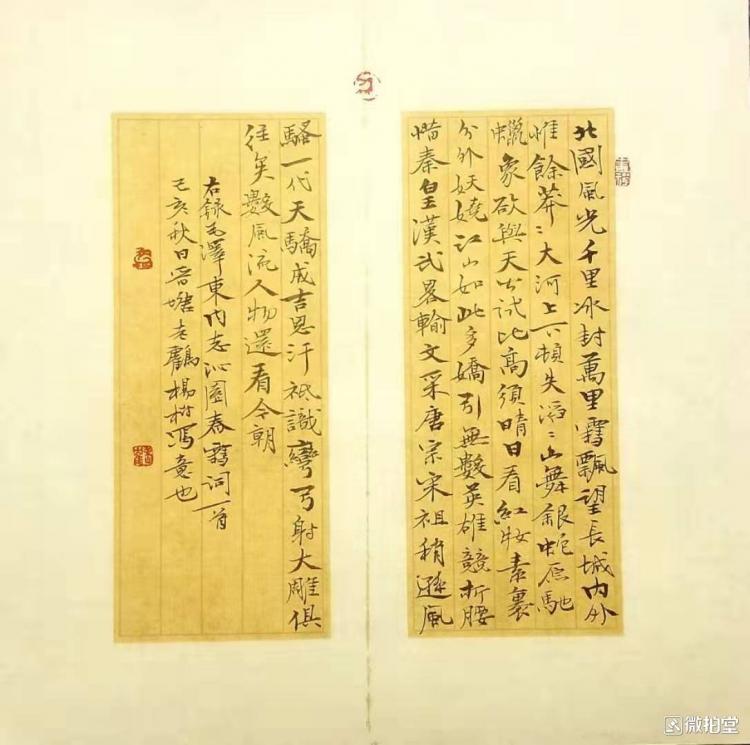 北國風光千里冰封萬里雪飄望長城內外
惟餘莽〻大河上下頓失滔〻山舞銀蛇原馳
蠟象欲與天公試比高須晴日看紅妝素裹
分外妖嬈江山如此多嬌引無數英雄競折腰
惜秦皇漢武畧輸文采唐宗宋祖稍遜風
騷一代天驕成吉思汗祇識彎弓射大雕俱
往矣數風流人物還看今朝
右錄毛澤東同志沁園春雪詞一首
己亥秋日塘老楊意也
微拍堂